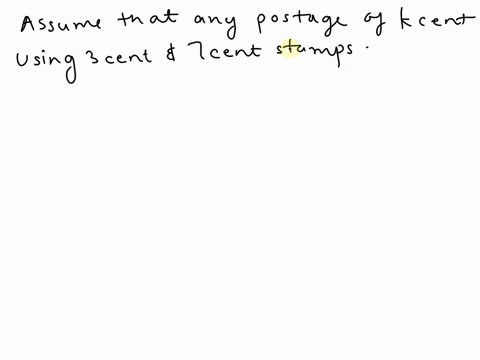 Assume that any postage of k cent
using 3 cent & 7 cent stamps.